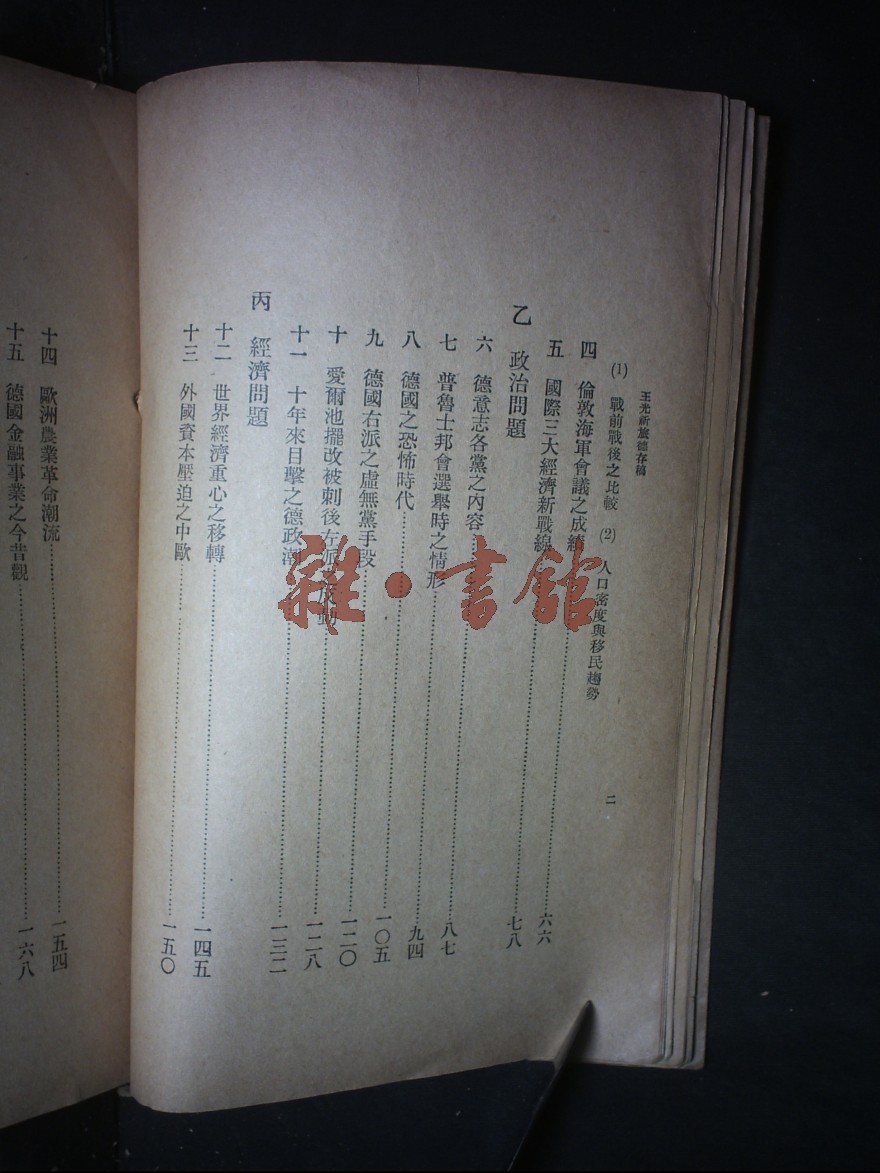 王光祈旅德存稿
二
(1) 戰前戰後之比較 (2) 人口密度與移民趨勢
四 倫敦海軍會議之成績……六六
五 國際三大經濟新戰線……七八
乙 政治問題
六 德意志各黨之內容……八七
七 普魯士邦會選舉時之情形……九四
八 德國之恐怖時代……一〇五
九 德國右派之虛無黨手段……一二〇
十 愛爾池擺改被刺後左派之反動……一二八
十一 十年來目擊之德政潮……一三二
丙 經濟問題
十二 世界經濟重心之移轉……一四五
十三 外國資本壓迫之中歐……一五〇
十四 歐洲農業革命潮流……一五四
十五 德國金融事業之今昔觀……一六八
雜·書館